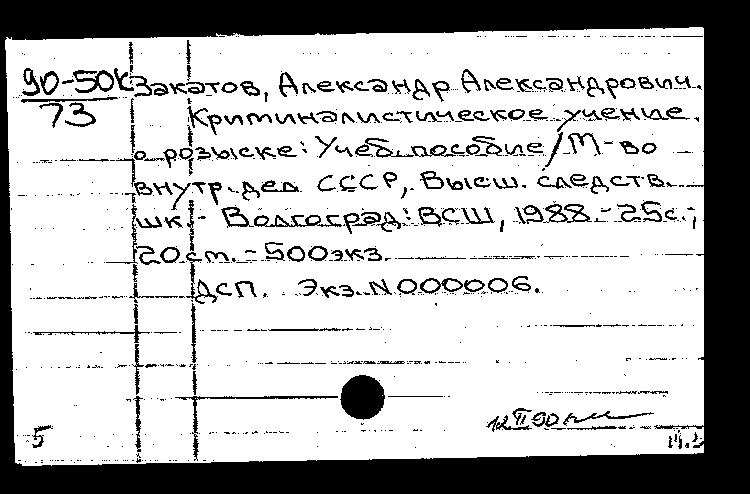 90-50К Закатов, Александр Александрович.
73 Криминалистическое учение
о розыске: Учеб. пособие / М-во
внутр. дел СССР, Высш. следств.
шк. - Волгоград: ВСШ, 1988. - 25с.;
20 см. - 500 экз.
ДСП. Экз. N 000006.
12 II 90
5